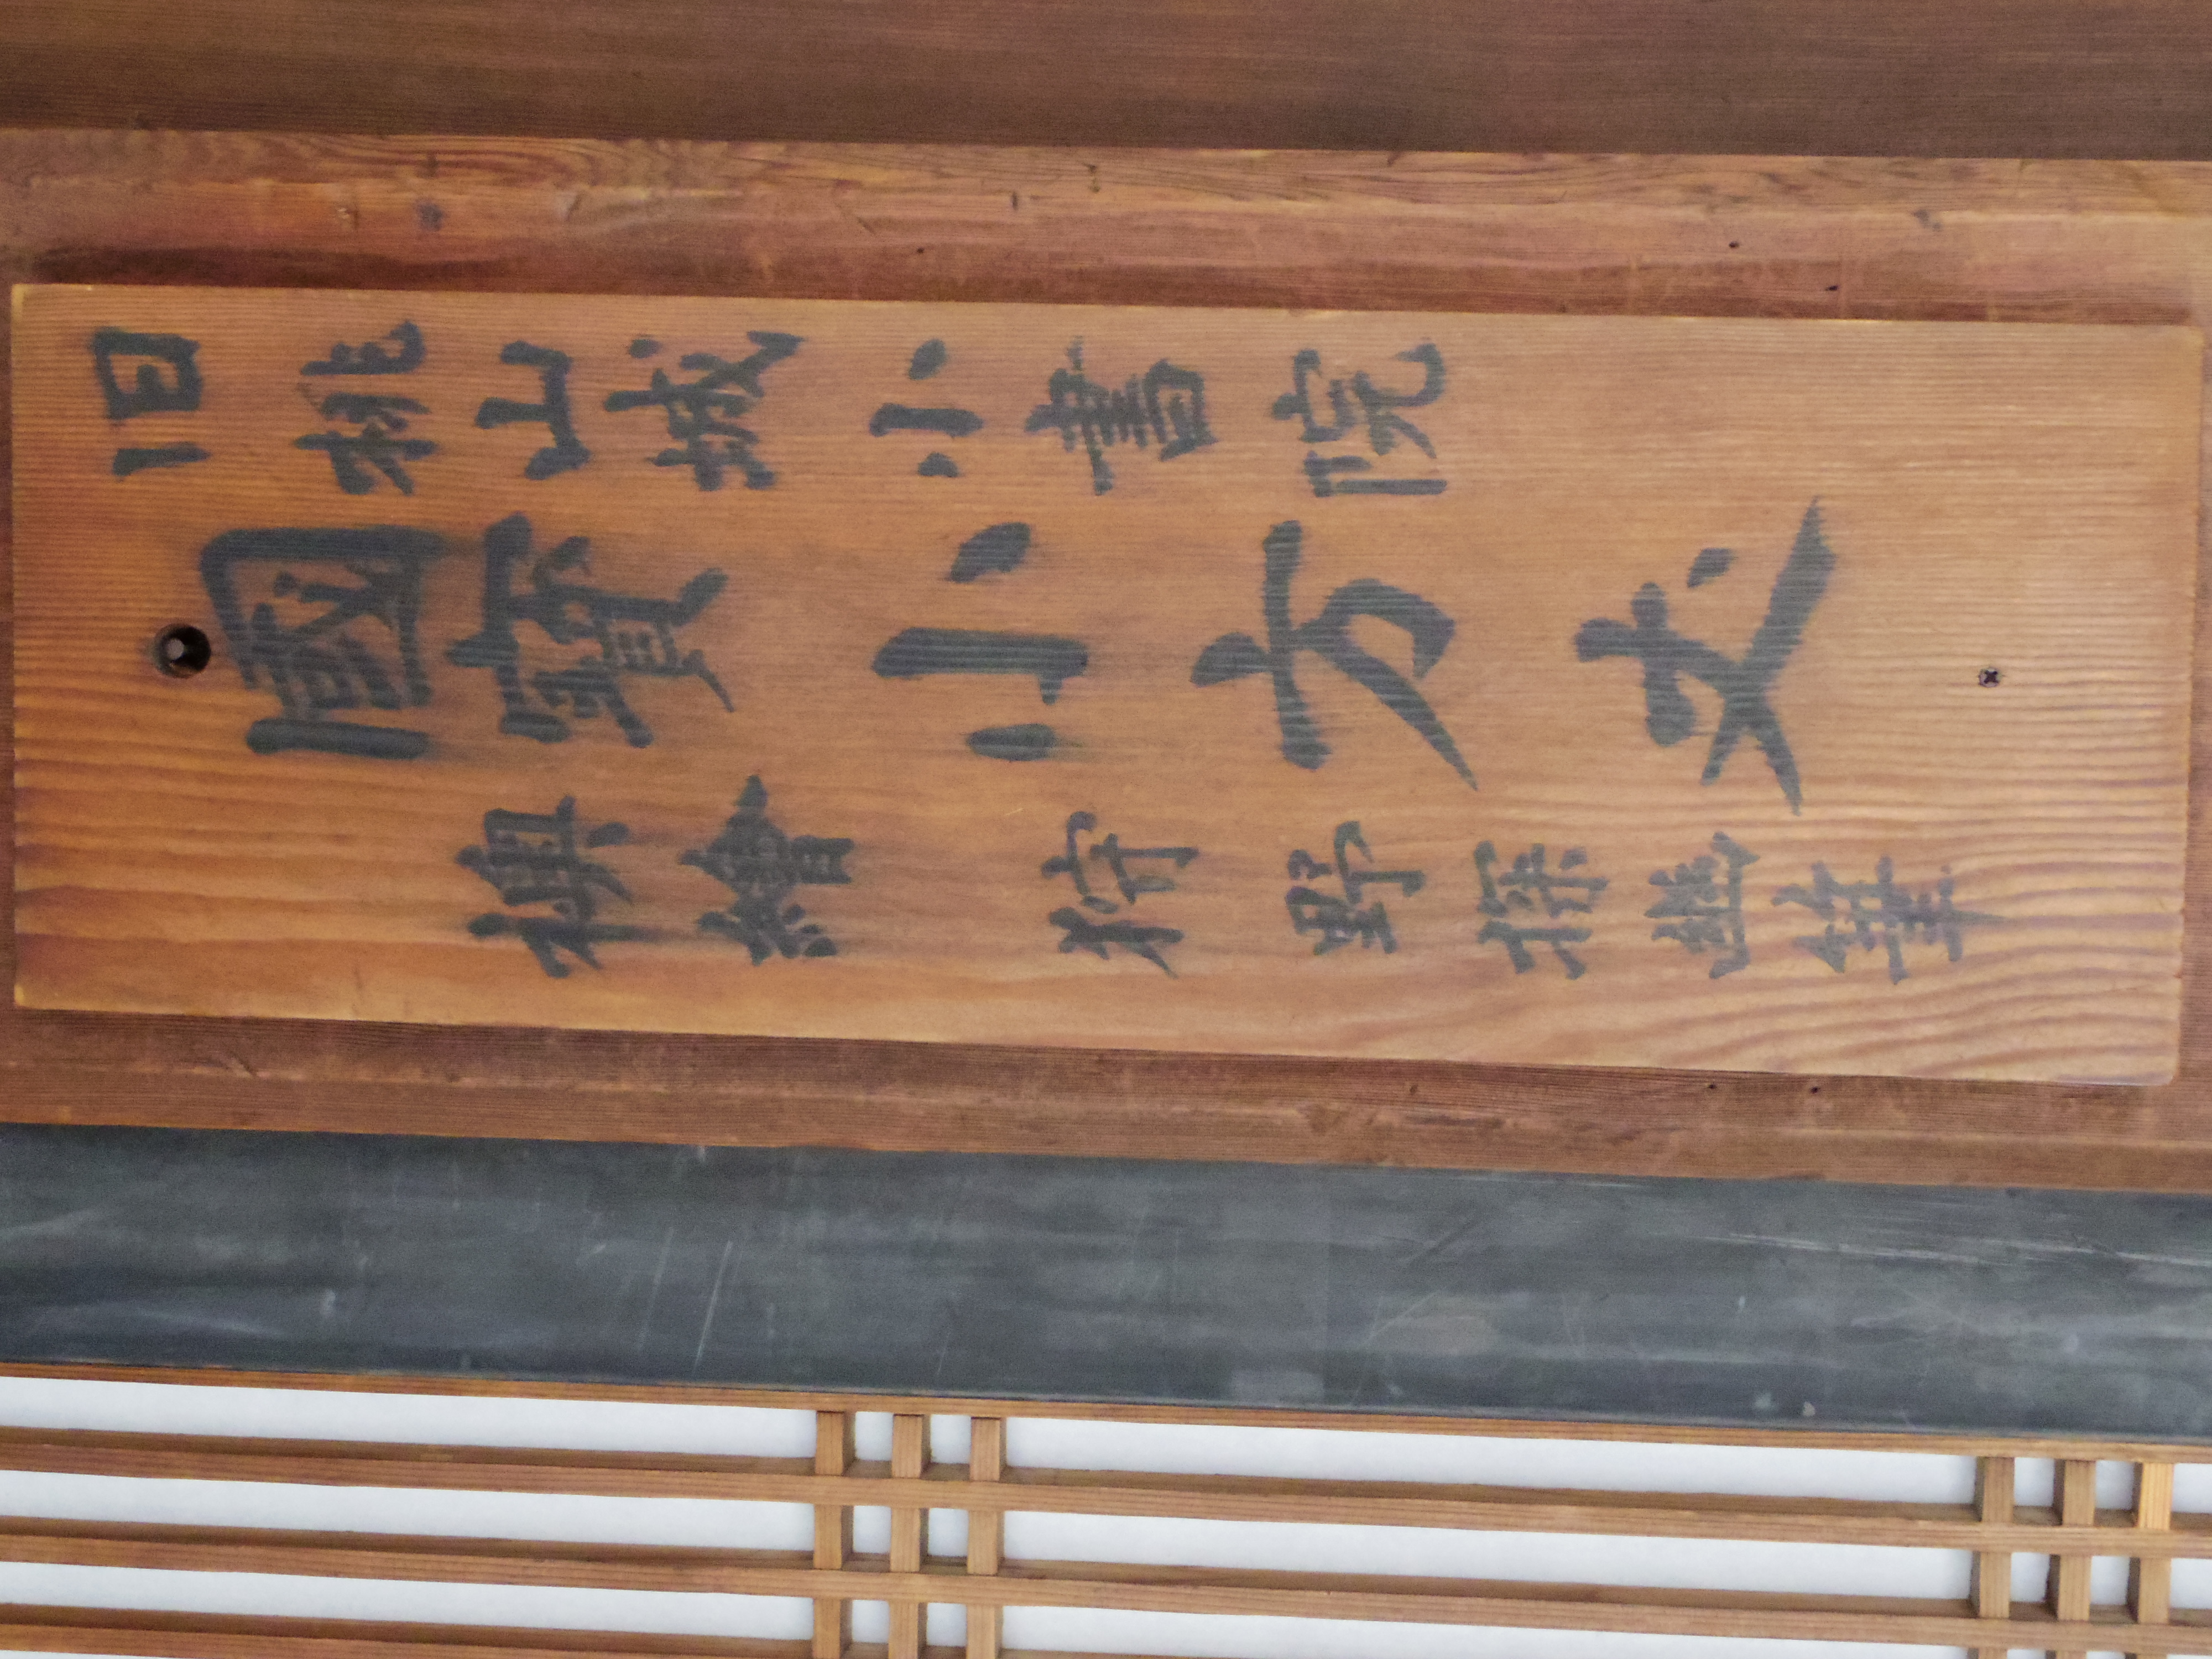 旧桃山城小書院
國寳小方丈
襖繪 狩野探幽筆